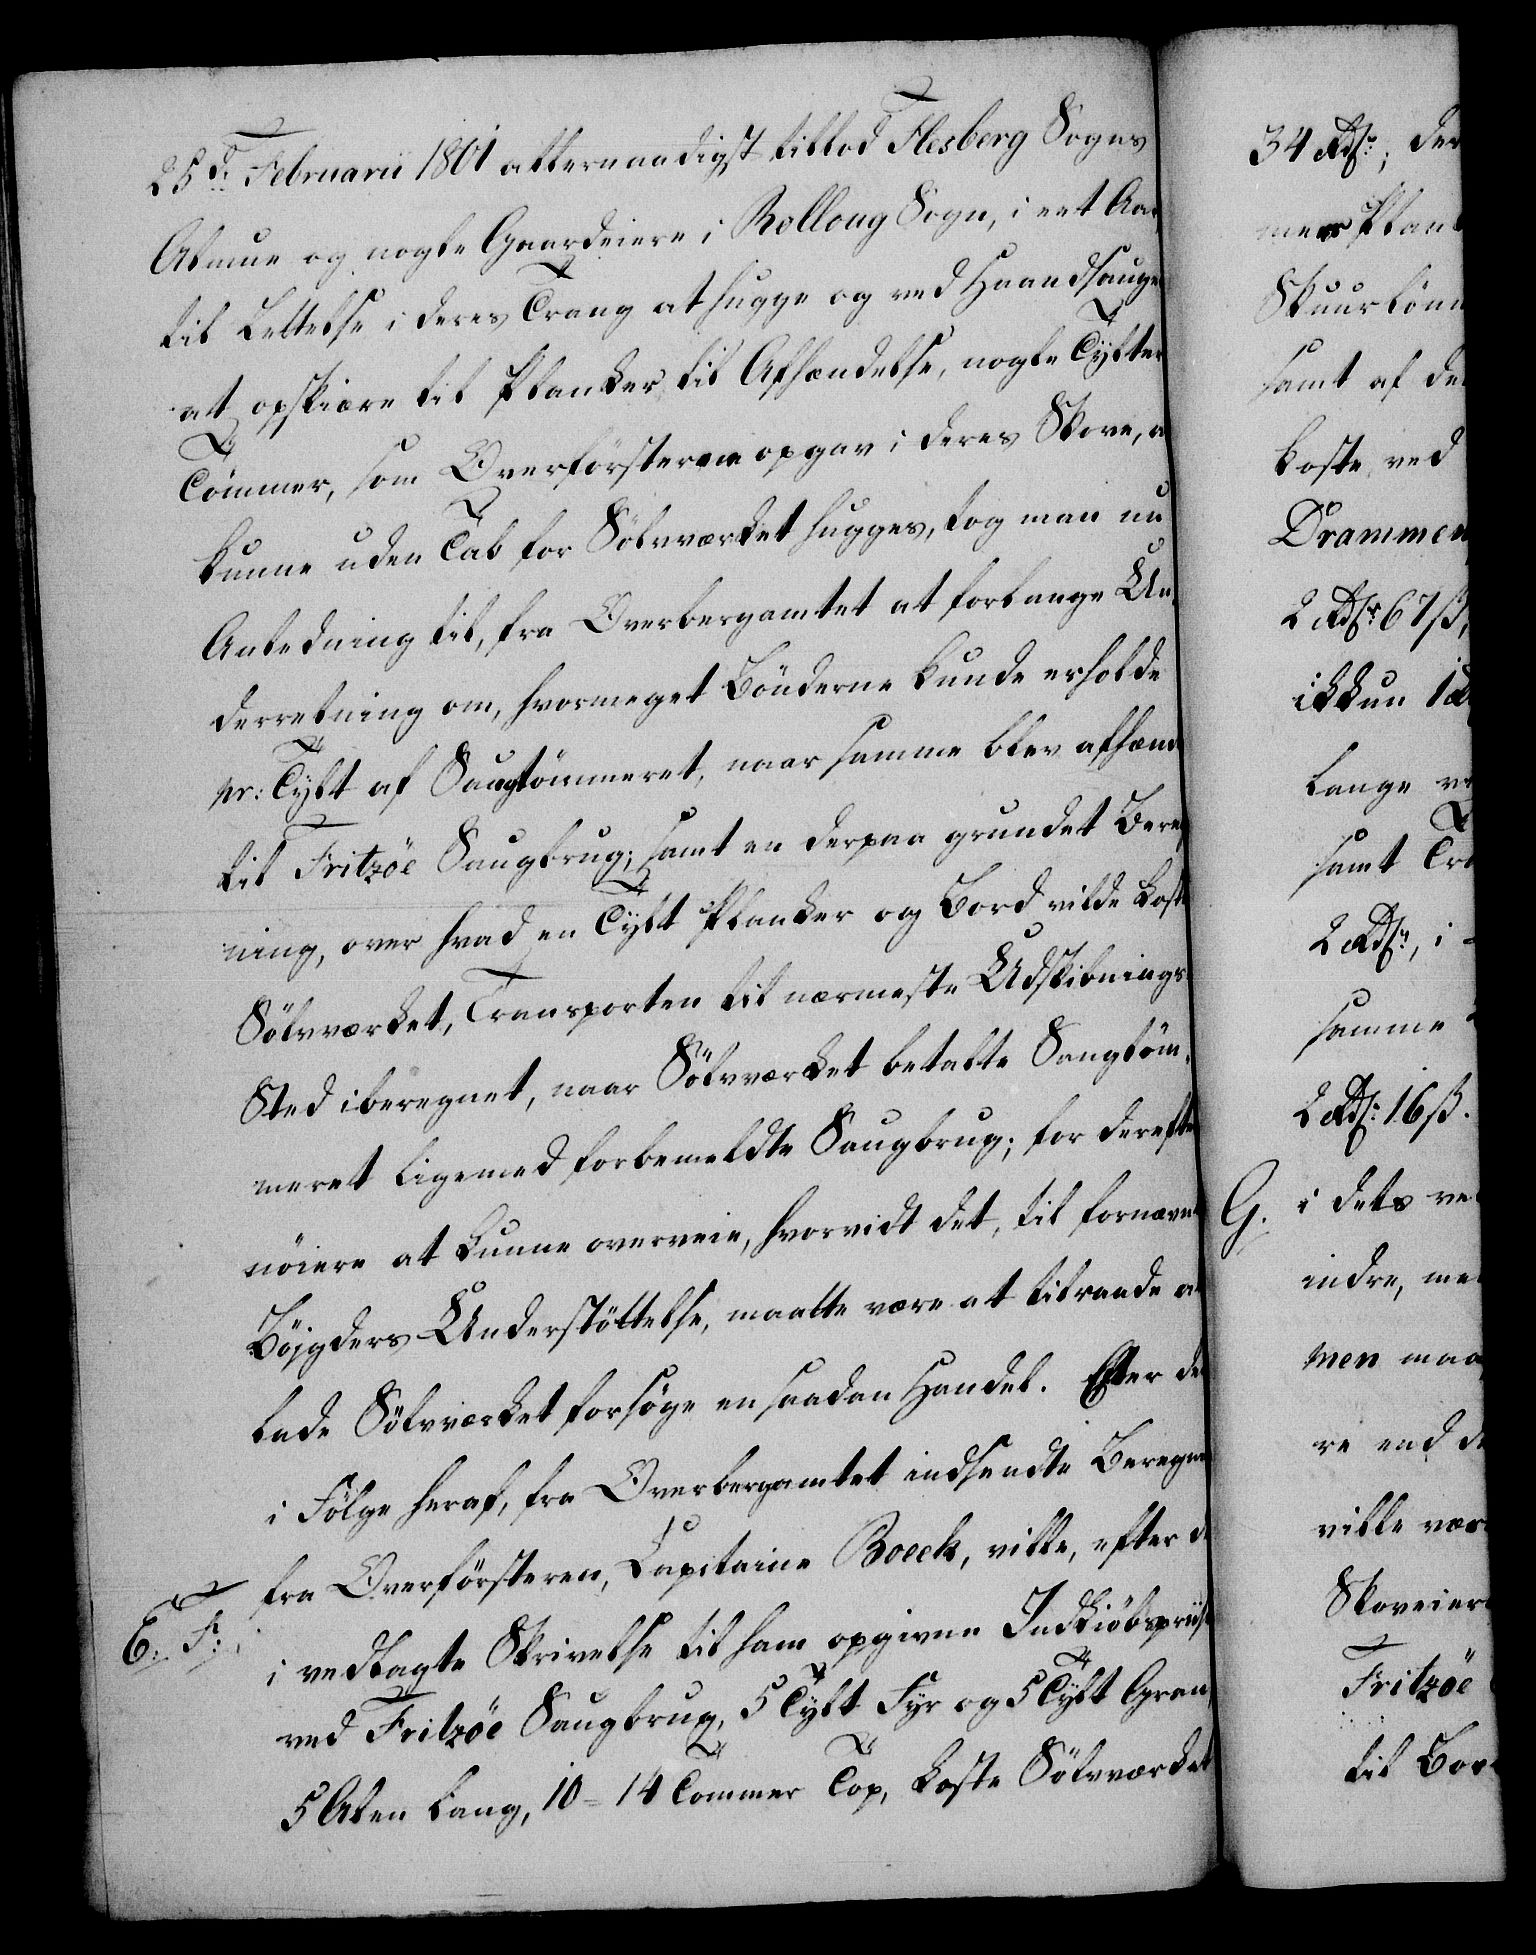 25de Februarii 1801 allernaadigst tillod Flesberg Sogns
Almue og nogle Gaardeiere i Rolloug Sogn, i eet Aar
til Lettelse i deres Trang at hugge og ved Haandsauge
at opskiære til Planker til Afhændelse, nogle Tylter
Tömmer, som Overförsteren opgav i deres Skove, at
kunne uden Tab for Sölvværket hugges, tog man nu
Anledning til, fra Overbergamtet at forlange Un-
derretning om, hvormeget Bönderne kunde erholde
pr: Tylt af Saugtömmeret, naar samme blev afhænd
til Fritzöe Saugbrug; samt en derpaa grundet Bereg
ning, over hvad en Tylt Planker og Bord vilde koste
Sölvværket, Transporten til nærmeste Udskibnings
Sted iberegnet, naar Sölvværket betalte Saugtöm-
meret ligemed forbemeldte Saugbrug; for derefter
nöiere at kunne overveie, hvorvidt det, til fornævnte
Böjgders Understöttelse, maatte være at tilraade at
lade Sölvværket forsöge en saadan Handel. Efter de
i Fölge heraf, fra Overbergamtet indsendte Beregn
fra Overförsteren, Capitaine Boeck, ville, efter d
E. F. i vedlagte Skrivelse til ham opgivne Indkiöbspriis
ved Fritzöe Saugbrug, 5 Tylt Fyr og 5 Tylt Gran,
5 Alen lang, 10 = 14 Tommer Top, koste Sölvværket
34 Rdr; der
mer Plank
Skuurlönn
samt af de
koste ved
Drammen
2 Rdr 67 ß,
ikkun 1
lange
samt Tr
2 Rdr, i
samme
2 Rdr 16 ß.
G. i dets ve
indre, me
men maa
re end d
ville vær
Skoveier
Fritzöe
til Bor